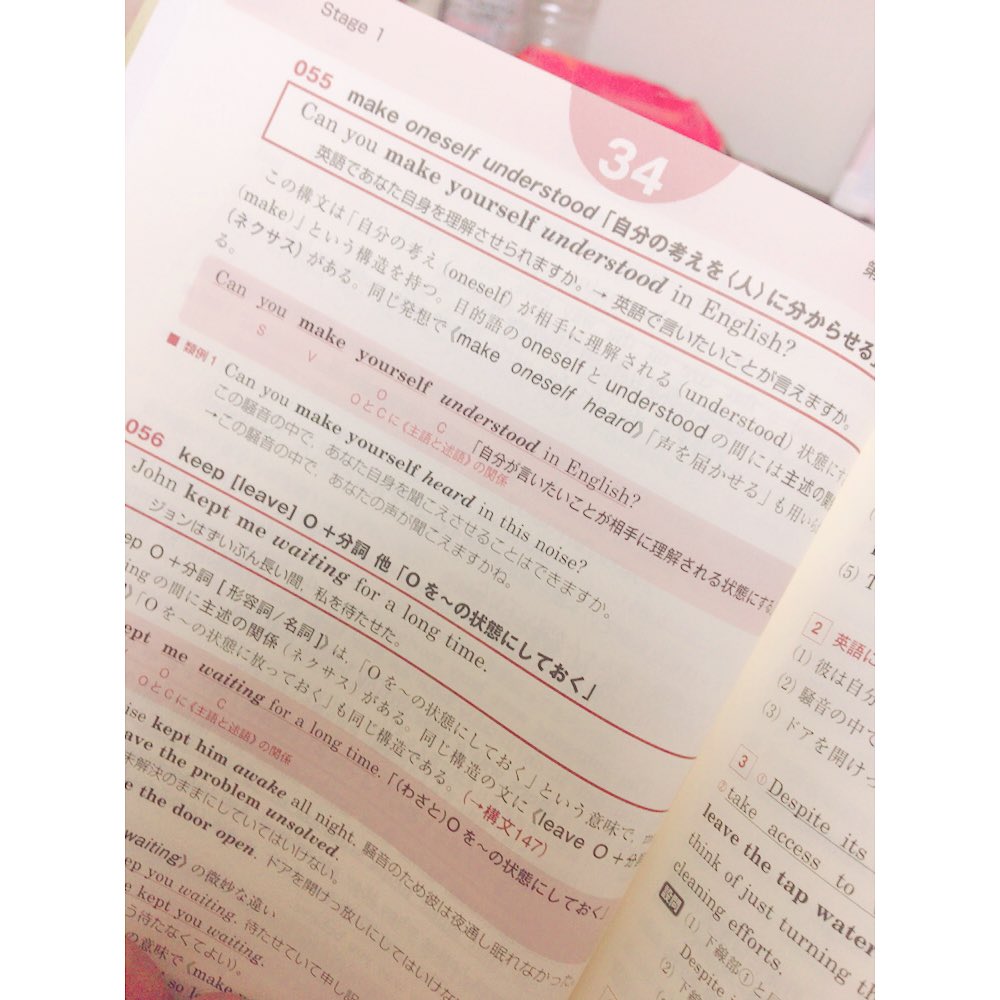 Stage 1
34
055 make oneself understood「自分の考えを〈人〉に分からせる」
Can you make yourself understood in English?
英語であなた自身を理解させられますか。→ 英語で言いたいことが言えますか。
この構文は「自分の考え (oneself) が相手に理解される (understood) 状態にす
(make)」という構造を持つ。目的語の oneself と understood の間には主述の関
(ネクサス) がある。同じ発想で《make oneself heard》「声を届かせる」も用いら
る。
Can you make yourself understood in English?
S V O C 「自分が言いたいことが相手に理解される状態にする
OとCに《主語と述語》の関係
■ 類例1 Can you make yourself heard in this noise?
この騒音の中で、あなた自身を聞こえさせることはできますか。
→この騒音の中で、あなたの声が聞こえますかね。
056 keep [leave] O＋分詞 他「Oを〜の状態にしておく」
John kept me waiting for a long time.
ジョンはずいぶん長い間、私を待たせた。
ep O＋分詞 [形容詞/名詞]》は、「Oを〜の状態にしておく」という意味で、
ingの間に主述の関係 (ネクサス) がある。同じ構造の文に《leave O＋分
》「Oを〜の状態に放っておく」も同じ構造である。(→構文147)
ept me waiting for a long time.「(わざと)Oを〜の状態にしておく」
O C
OとCに《主語と述語》の関係
ise kept him awake all night. 騒音のため彼は夜通し眠れなかった
eave the problem unsolved.
未解決のままにしていてはいけない。
e the door open. ドアを開けっ放しにしてはいけない
waiting》の微妙な違い
ep you waiting. 待たせていて申し
e kept you waiting.
う待たなくてよい)。
の意味で《make y
(5) T
2 英語に
(1) 彼は自分
(2) 騒音の中で
(3) ドアを開けっ
3 ① Despite its
② take access to
leave the tap water
think of just turning th
cleaning efforts.
設問 (1) 下線部①と
Despite
(2) 下